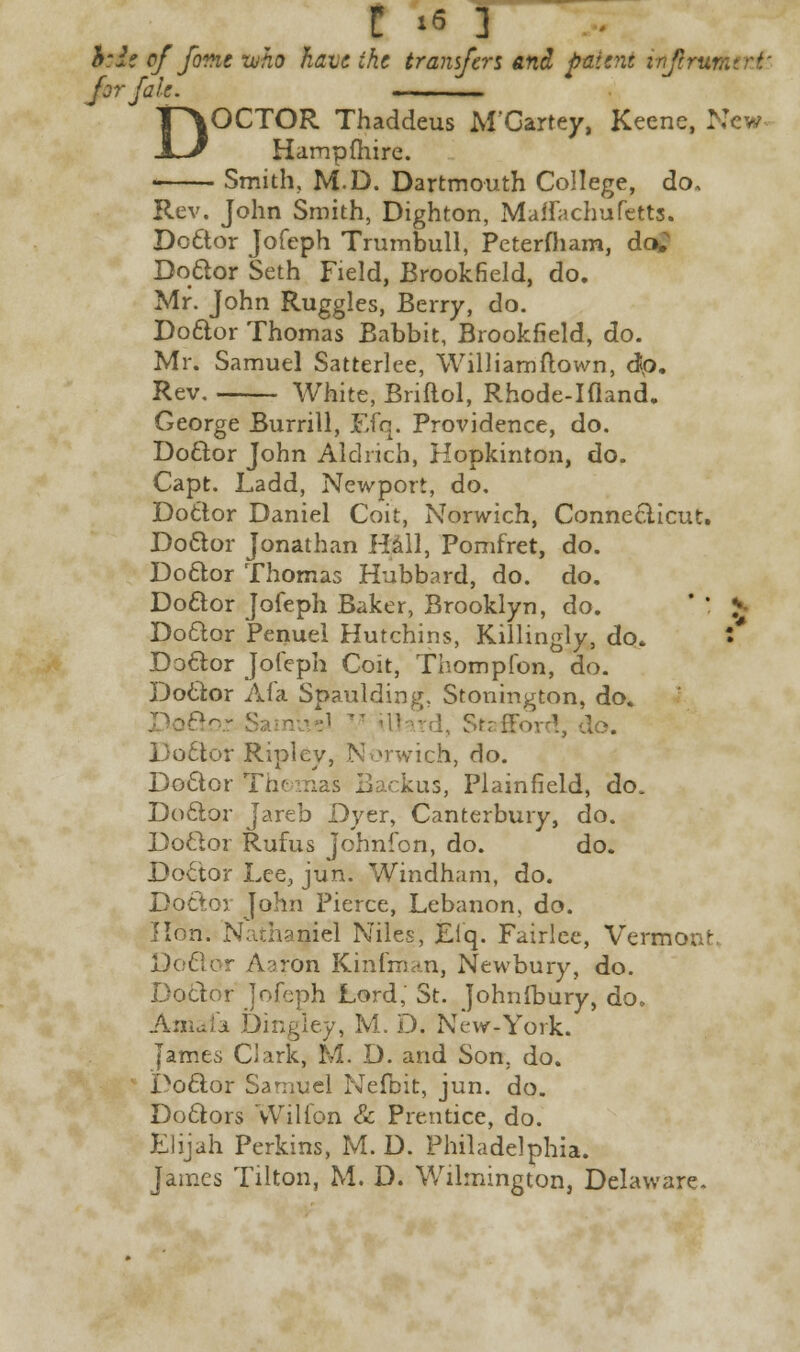 [ 16 ]
of ſome who have the transfers and patent inſtruments
for ſale.
DOCTOR Thaddeus M'Cartey, Keene, New-
Hampſhire.
—— Smith, M.D. Dartmouth College, do.
Rev. John Smith, Dighton, Maſſachuſetts.
Doctor Joſeph Trumbull, Peterſham, do.
Doctor Seth Field, Brookfield, do.
Mr. John Ruggles, Berry, do.
Doctor Thomas Babbit, Brookfield, do.
Mr. Samuel Satterlee, Williamſtown, do.
Rev. —— White, Briſtol, Rhode-Iſland.
George Burrill, Eſq. Providence, do.
Doctor John Aldrich, Hopkinton, do.
Capt. Ladd, Newport, do.
Doctor Daniel Coit, Norwich, Connecticut.
Doctor Jonathan Hall, Pomfret, do.
Doctor Thomas Hubbard, do. do.
Doctor Joſeph Baker, Brooklyn, do.
Doctor Penuel Hutchins, Killingly, do.
Doctor Joſeph Coit, Thompſon, do.
Doctor Aſa Spaulding, Stonington, do.
Doctor Samuel Stafford, do.
Doctor Ripley, Norwich, do.
Doctor Thomas Backus, Plainfield, do.
Doctor Jareb Dyer, Canterbury, do.
Doctor Rufus Johnſon, do. do.
Doctor Lee, jun. Windham, do.
Doctor John Pierce, Lebanon, do.
Hon. Nathaniel Niles, Eſq. Fairlee, Vermont.
Doctor Aaron Kinſman, Newbury, do.
Doctor Joſeph Lord, St. Johnſbury, do.
Amaſa Dingley, M. D. New-York.
James Clark, M. D. and Son, do.
Doctor Samuel Neſbit, jun. do.
Doctors Wilſon & Prentice, do.
Elijah Perkins, M. D. Philadelphia.
James Tilton, M. D. Wilmington, Delaware.